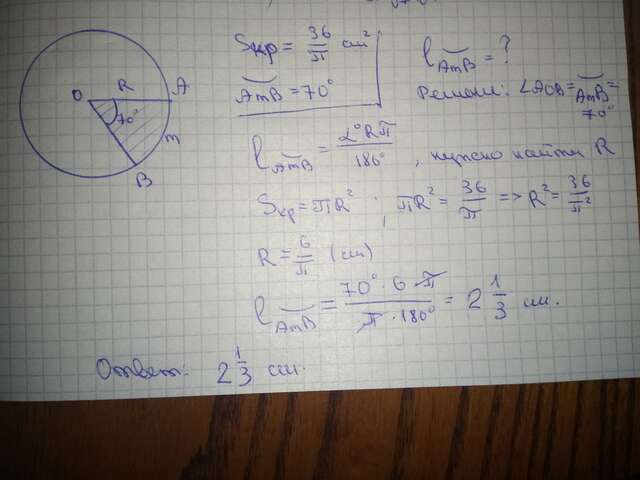 O R A
70°
m
B
Sкр = 36/π см²
◡AmB = 70°
l◡AmB = ?
Решение: ∠AOB = ◡AmB = 70°
l◡AmB = α°Rπ/180°, нужно найти R
Sкр = πR²; πR² = 36/π => R² = 36/π²
R = 6/π (см)
l◡AmB = 70°·6·π/π·180° = 2 1/3 см.
Ответ: 2 1/3 см.